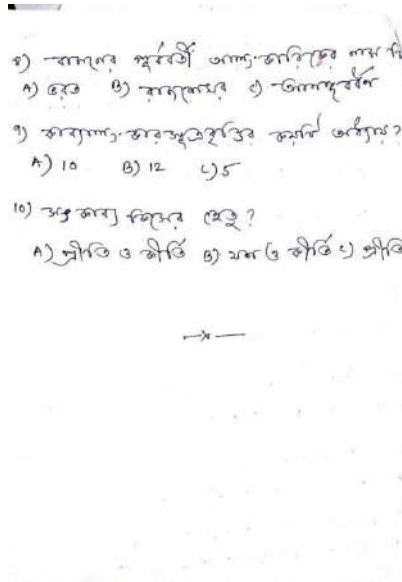 ৪) বামনের পূর্ববর্তী আলংকারিকের নাম কি
A) ভরত B) রাজশেখর C) আনন্দবর্ধন
৭) কাব্যালংকারসূত্রবৃত্তির কয়টি অধ্যায়?
A) 10 B) 12 C) 5
10) সৎ কাব্য কিসের হেতু?
A) প্রীতি ও কীর্তি B) যশ ও কীর্তি C) প্রীতি